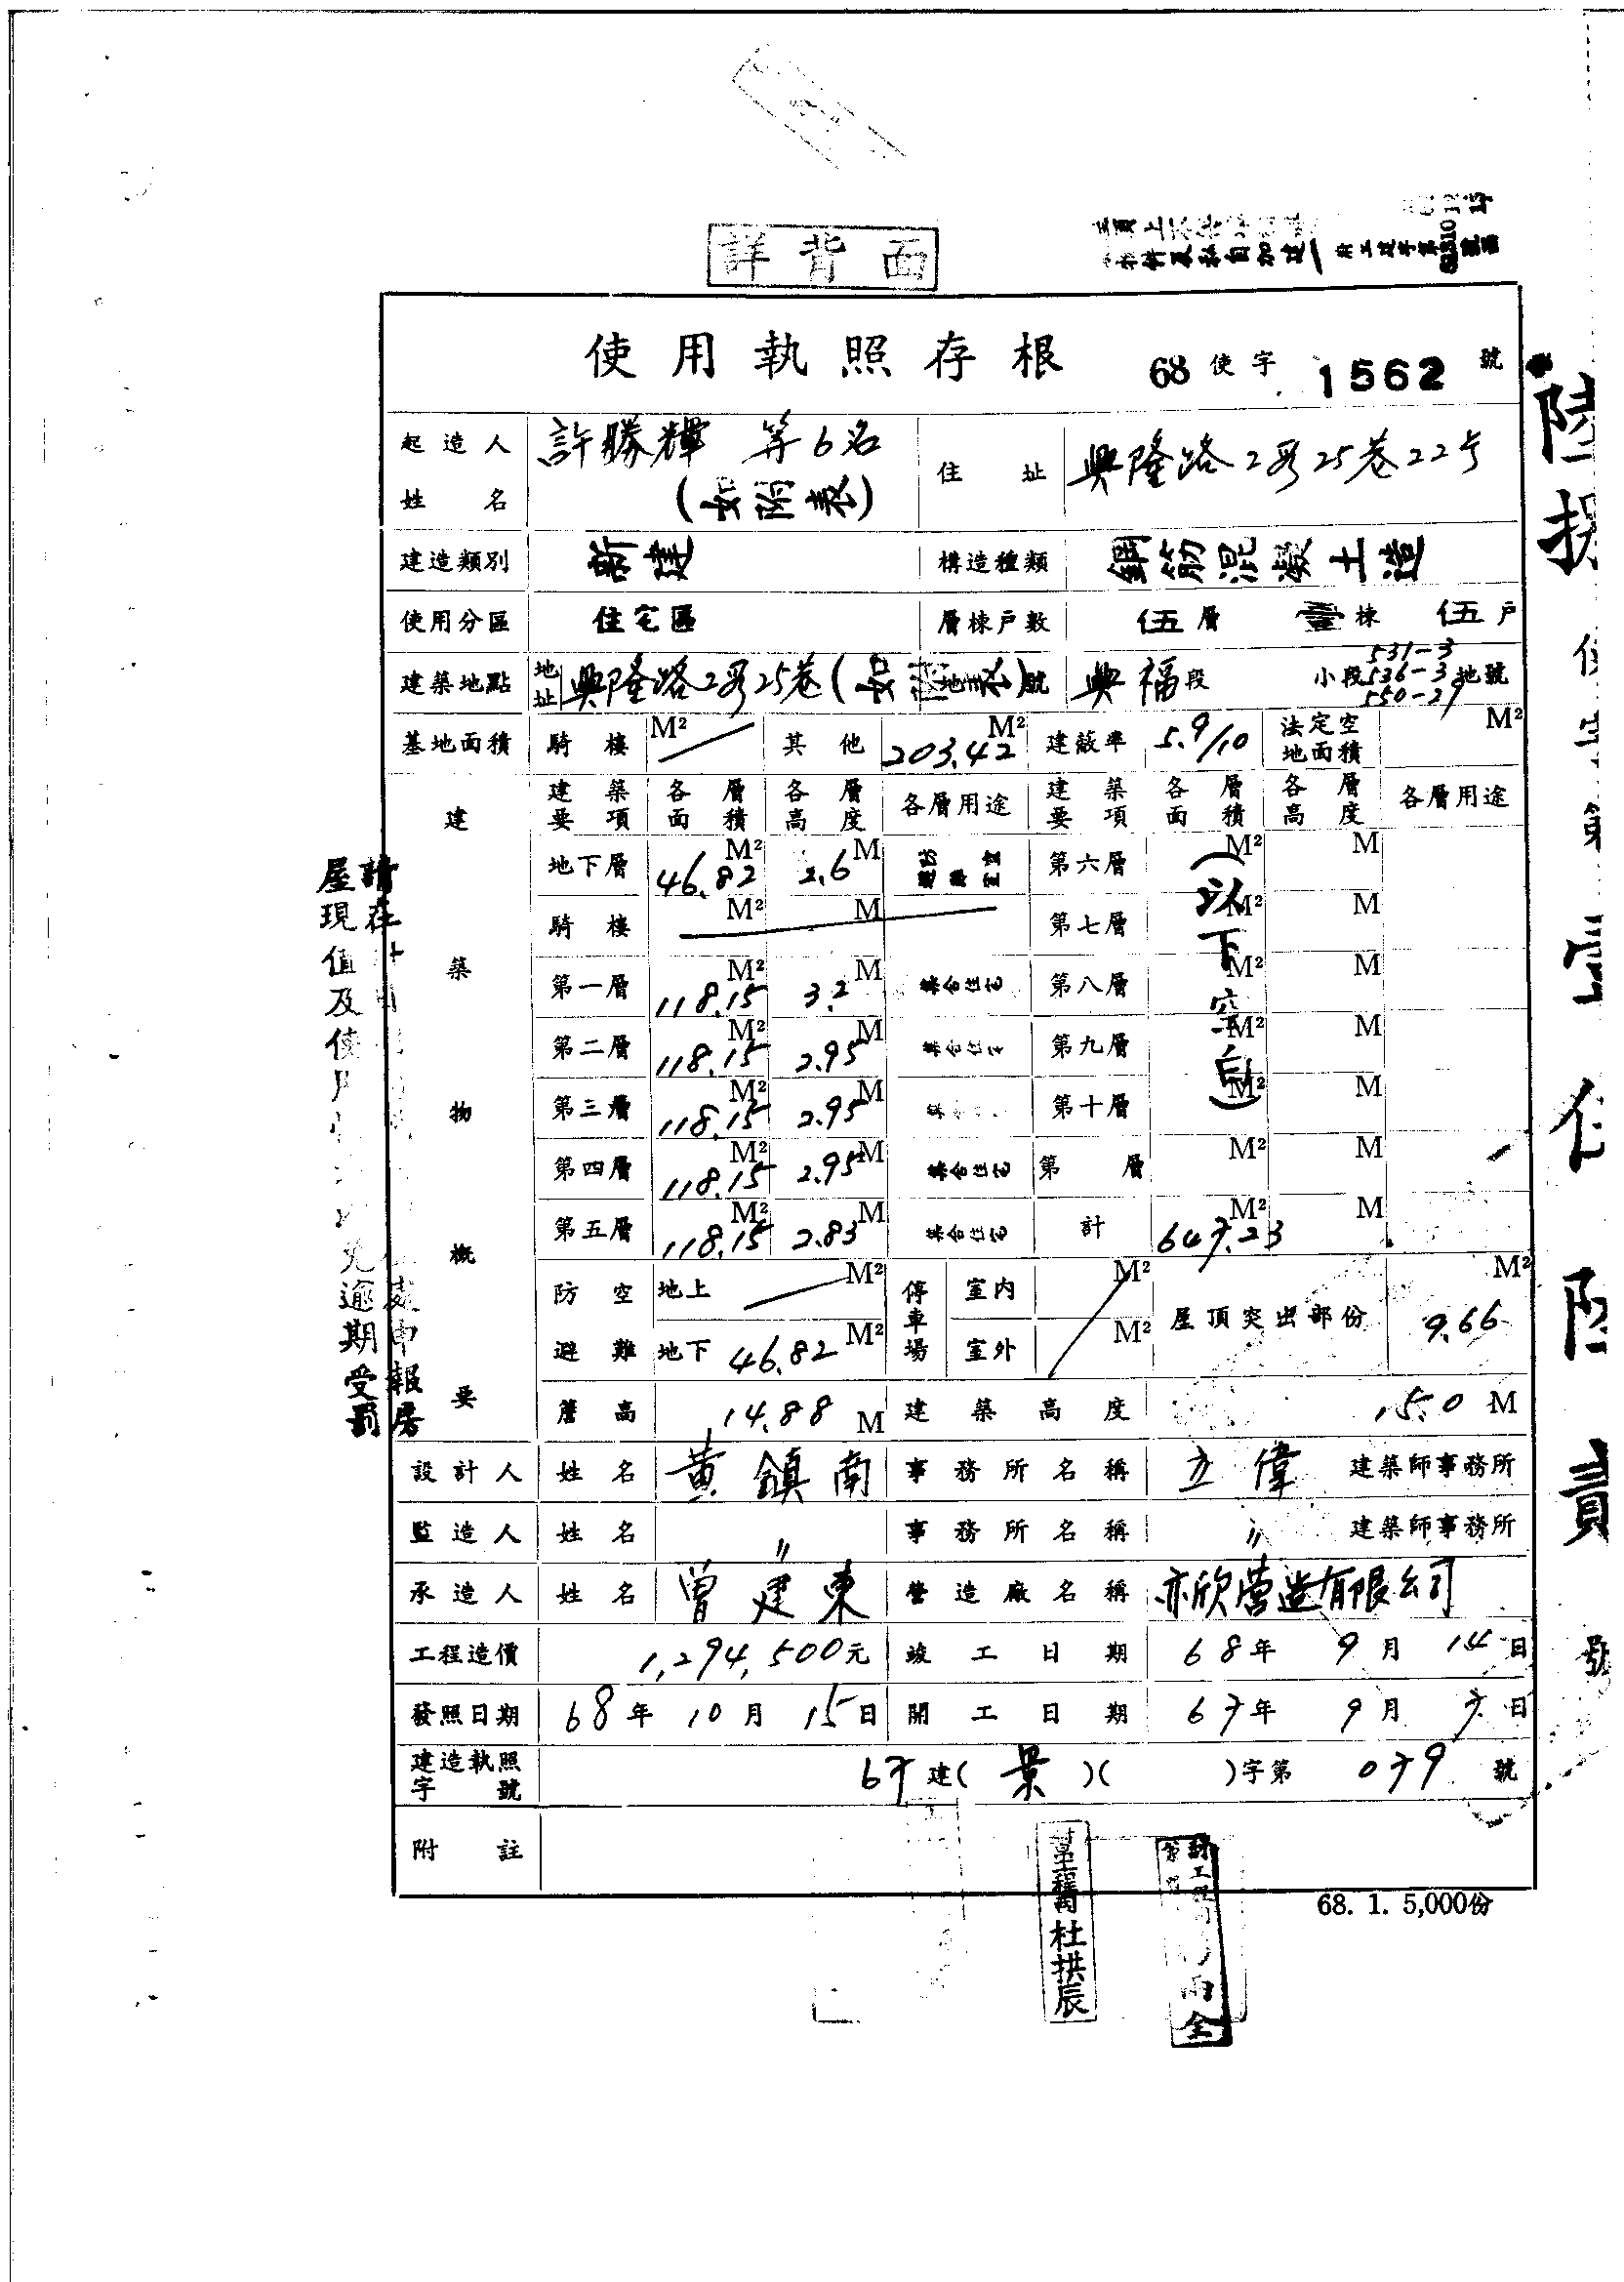 詳背面
使用執照存根 68 使字 1562 號
起造人姓名 許勝輝 等6名 (如附表) 住址 興隆路2段25巷22号
建造類別 新建 構造種類 鋼筋混凝土造
使用分區 住宅區 層棟戶數 伍層 壹棟 伍戶
建築地點 地址 興隆路2段25巷( 地號 興福段 小段 531-3 536-3 550-27 地號
基地面積 騎樓 M² 其他 203.42 M² 建蔽率 5.9/10 法定空地面積 M²
建築物概要
建築要項 各層面積 各層高度 各層用途 建築要項 各層面積 各層高度 各層用途
地下層 46.82 M² 2.6 M 第六層 M² M
騎樓 M² M 第七層 M² M
第一層 118.15 M² 3.2 M 集合住宅 第八層 M² M
第二層 118.15 M² 2.95 M 集合住宅 第九層 M² M
第三層 118.15 M² 2.95 M 第十層 M² M
第四層 118.15 M² 2.95 M 集合住宅 第 層 M² M
第五層 118.15 M² 2.83 M 集合住宅 計 647.23 M² M
(以下空白)
防空避難 地上 M² 停車場 室內 M² 屋頂突出部份 9.66 M²
地下 46.82 M² 室外 M²
簷高 14.88 M 建築高度 15.0 M
設計人 姓名 黃鎮南 事務所名稱 立偉 建築師事務所
監造人 姓名 〃 事務所名稱 〃 建築師事務所
承造人 姓名 曾建東 營造廠名稱 亦欣營造有限公司
工程造價 1,294,500元 竣工日期 68年 9月 14日
發照日期 68年 10月 15日 開工日期 67年 9月 7日
建造執照字號 67建(景)( )字第 079 號
附註
68. 1. 5,000份
杜拱辰
逾期受罰